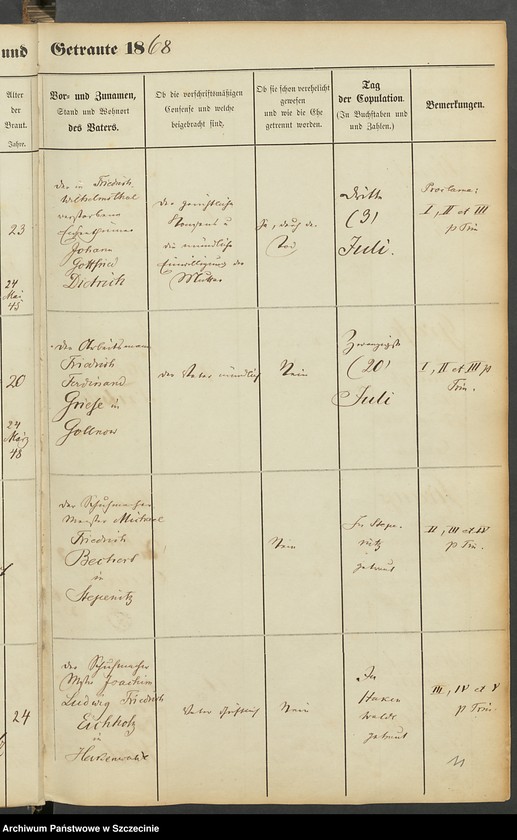 und
Getraute 1868
Alter
der
Braut.
Jahre.
Vor- und Zunamen,
Stand und Wohnort
des Vaters.
Ob die vorschriftsmäßigen
Consense und welche
beigebracht sind.
Ob sie schon verehelicht
gewesen
und wie die Ehe
getrennt worden.
Tag
der Copulation.
(In Buchstaben und
und Zahlen.)
Bemerkungen.
23
24
Mai
45
der in Friedrich
Wilhelmsthal
verstorbene
Eigenthümer
Johann
Gottfried
Dietrich
der gerichtliche
Consens u
die mündliche
Einwilligung der
Mutter
Ja, durch den
Tod
Dritte
(3)
Juli.
Proclama:
I, II et III
p Trin
20
24
März
48
der Arbeitsmann
Friedrich
Ferdinand
Griese in
Gollnow
der Vater mündlich
Nein
Zwanzigste
(20)
Juli
I, II et III p
Trin.
der Schuhmacher
Meister Michael
Friedrich
Bechert
in
Stepenitz
Nein
In Stepe-
nitz
getraut
II, III et IV
p Trin.
24
der Schuhmacher
Mstr Joachim
Ludwig Friedrich
Eichholz
in
Hakenwalde
Vater schriftlich
Nein
In
Haken
walde
getraut
III, IV et V
p Trin.
Archiwum Państwowe w Szczecinie